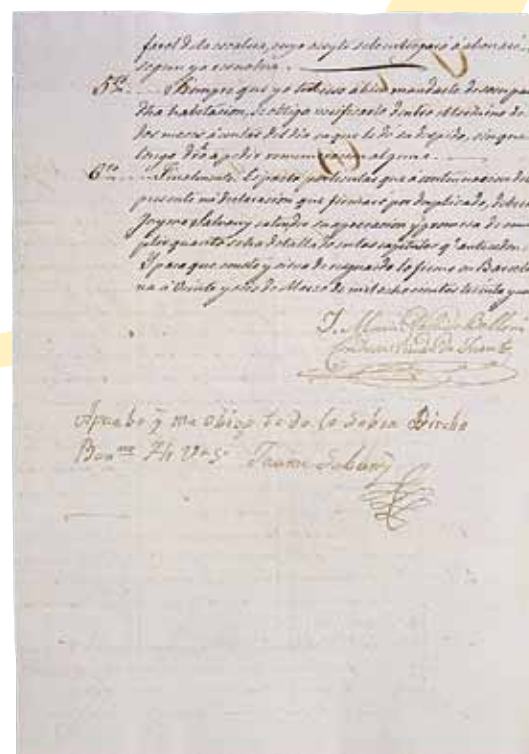 farol de la escalera, cuyo aceyte
segun ya
5to. Siempre que yo tubiese á bien mandarle desocupar
dha habitacion, se obliga verificarlo dentro el termino de
dos meses á contar del dia en que le dé su despido, sin que
tenga dro á pedir remuneracion alguna.
6to. Finalmente: Es pacto particular que á continuacion del
presente ma declaracion que firmará por duplicado, deberá
Jayme Salvany estender su aprovacion y promesa de cum
plir quanto se ha detallado en los capitulos qe anteceden.
Y para que conste y sirva de resguardo lo firmo en Barcelo
na á Veinte y dos de Marzo de mil ocho cientos treinta y
J. Maria
Apruebo y me obligo to do lo sobre Dircho
Jaume Salvañ